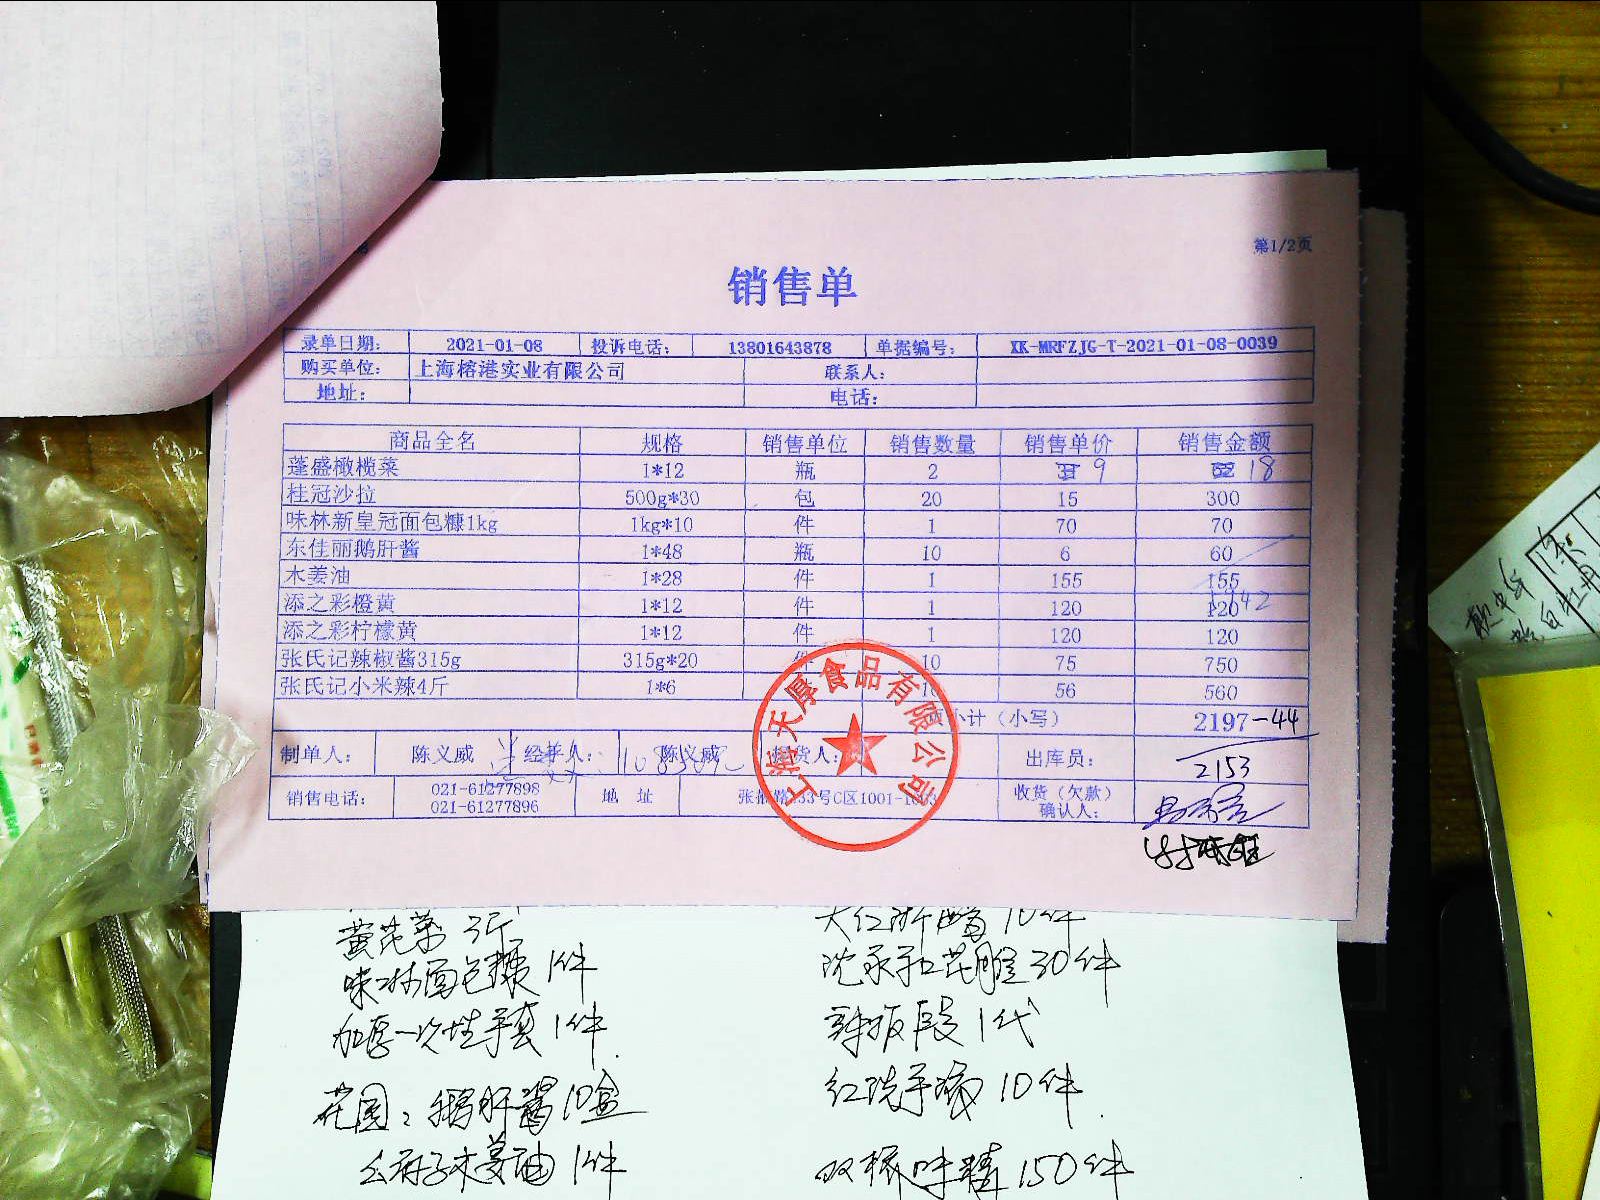 第1/2页
销售单
录单日期： 2021-01-08 投诉电话： 13801643878 单据编号： XK-MRFZJG-T-2021-01-08-0039
购买单位： 上海榕港实业有限公司 联系人：
地址： 电话：
商品全名 规格 销售单位 销售数量 销售单价 销售金额
蓬盛橄榄菜 1*12 瓶 2 9 18
桂冠沙拉 500g*30 包 20 15 300
味林新皇冠面包糠1kg 1kg*10 件 1 70 70
东佳丽鹅肝酱 1*48 瓶 10 6 60
木姜油 1*28 件 1 155 155
添之彩橙黄 1*12 件 1 120 120
添之彩柠檬黄 1*12 件 1 120 120
张氏记辣椒酱315g 315g*20 件 10 75 750
张氏记小米辣4斤 1*6 56 560
小计（小写） 2197-44
制单人： 陈义威 经手人： 陈义威 货人： 出库员： 2153
销售电话： 021-61277898 021-61277896 地 址 号C区1001- 收货（欠款）确认人：
上海天厚食品有限公司
黄花菜 3斤 10件
味林面包糠 1件 沈永和花雕 30件
加厚一次性手套 1件 1代
花园：鹅肝酱10盒 10件
木姜油 1件 双桥味精 150件